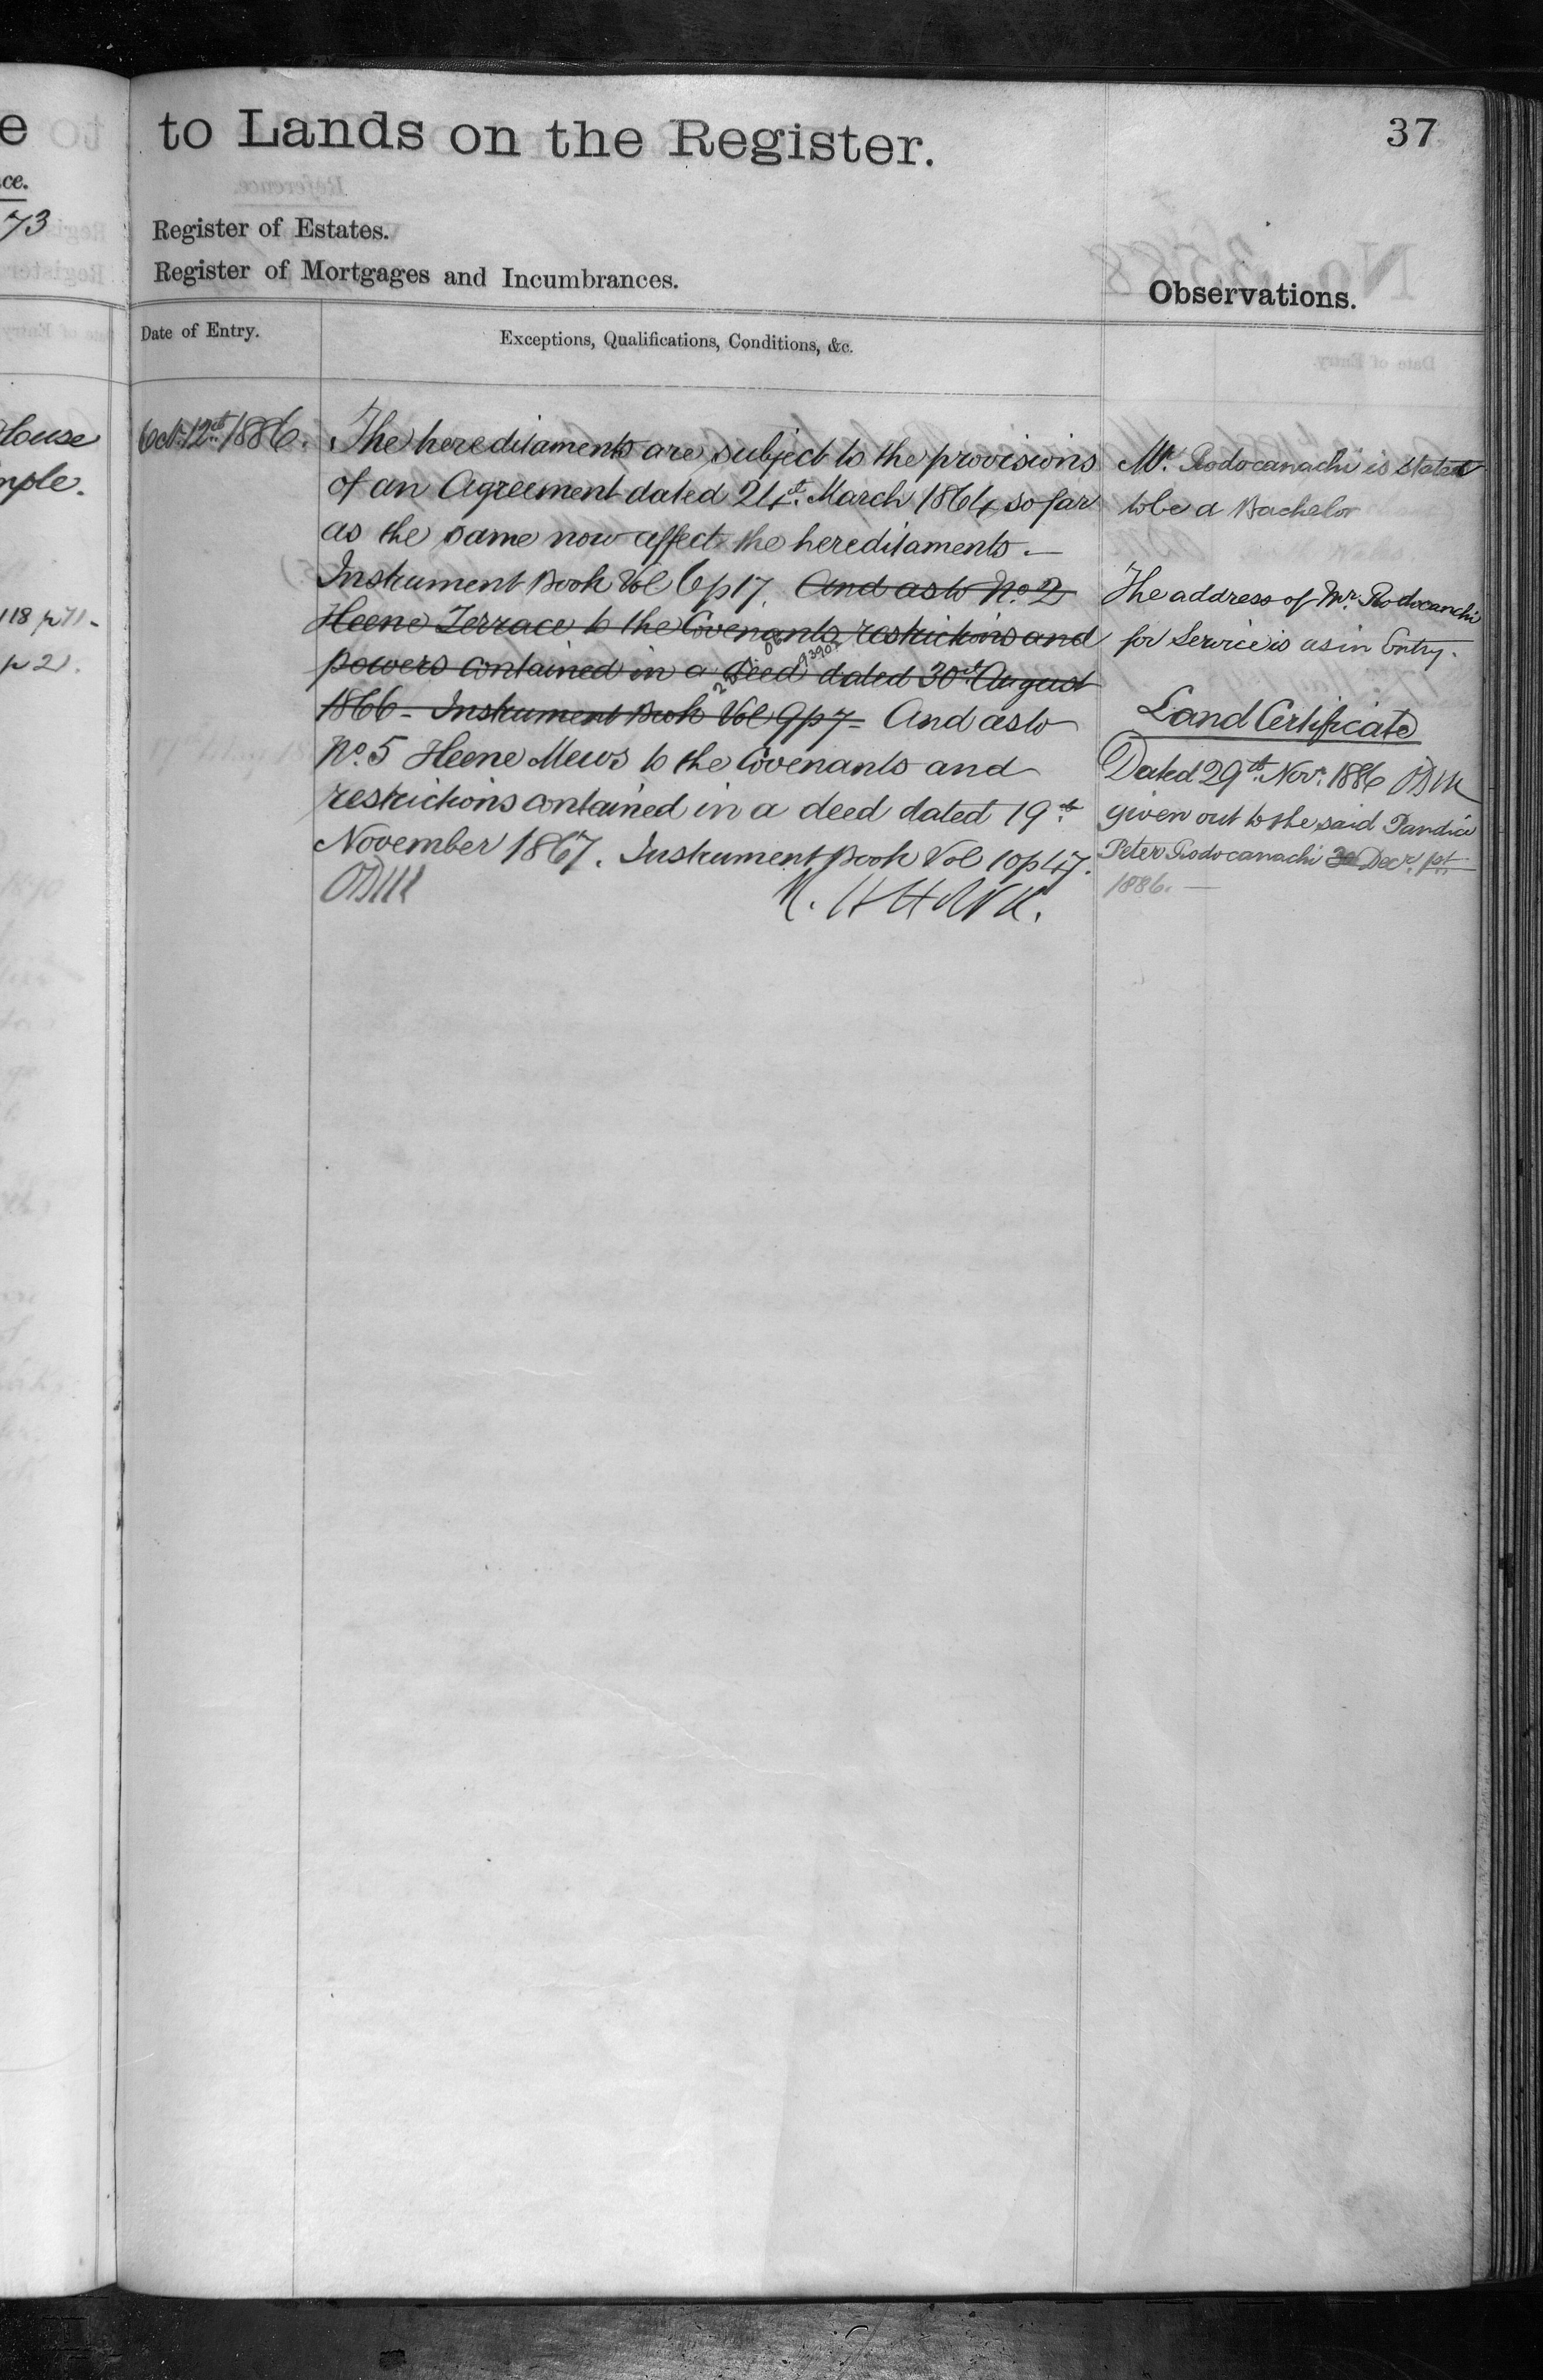 to Lands on the Register.
37
Register of Estates.
Register of Mortgages and Incumbrances.
Observations.
Date of Entry.
Exceptions, Qualifications, Conditions, &c.
Oct. 12th 1886.
The hereditaments are subject to the provisions
of an Agreement dated 24th March 1864, so far
as the same now affect the hereditaments.—
Instrument Book Vol 6 p 17. And as to No. 2
Heene Terrace to the Covenants restrictions and
powers contained in a deed dated 30th August
1866 - Instrument Book Vol 9 p 7 - And as to
No. 5 Heene Mews to the Covenants and
restrictions contained in a deed dated 19th
November 1867. Instrument Book Vol 10 p 47.
Mr. Rodocanachi is stated
to be a Bachelor
The address of Mr. Rodocanchi
for Service is as in Entry.
Land Certificate
Dated 29th Novr. 1886
given out to the said Pandia
Peter Rodocanachi Decr. 1st.
1886. —
e
ce.
73
House
mple.
118 p 71.
p 2.